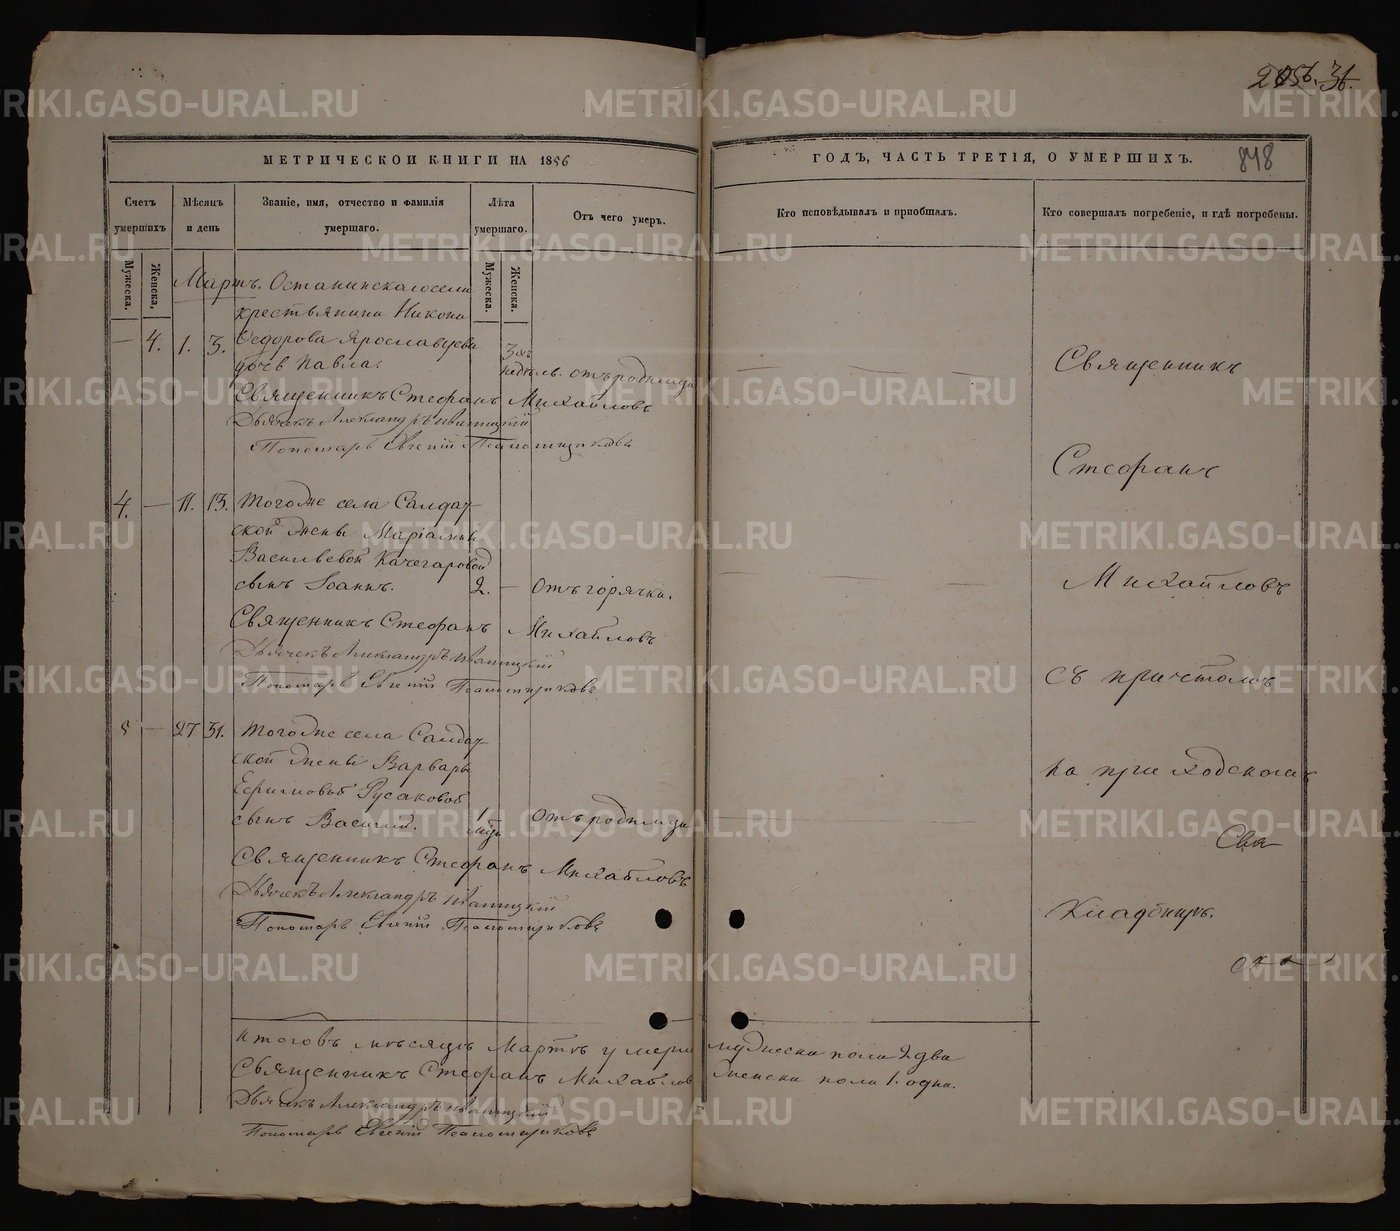 МЕТРИЧЕСКОЙ КНИГИ НА 1856
ГОДЪ, ЧАСТЬ ТРЕТІЯ, О УМЕРШИХЪ.
848
Счетъ умершихъ
Мужеска.
Женска.
Мѣсяцъ и день
Званіе, имя, отчество и фамилія умершаго.
Лѣта умершаго.
Мужеска.
Женска.
Отъ чего умеръ.
Кто исповѣдывалъ и пріобщалъ.
Кто совершалъ погребеніе, и гдѣ погребены.
Мартъ. Останинскаго села
крестьянина Никона
— 4. 1. 3. Ѳедорова Ярославцева
дочь Павла. 3хъ недѣль. отъ родимца
Священникъ Стефанъ Михайловъ
Дьячекъ Александръ Иваницкій
Пономарь Евгеній
4. — 11. 13. Тогоже села Салдат-
ской жены Маріамны
Васильевой Качегаровой
сынъ Іоаннъ. 2. — Отъ горячки.
Священникъ Стефанъ Михайловъ
Дьячекъ Александръ Иваницкій
Пономарь Евгеній
5 — 27 31. Тогоже села Салдат-
ской жены Варвары
Ефимовой Русаковой
сынъ Василій. 1 мѣс. Отъ родимца
Священникъ Стефанъ Михайловъ
Дьячекъ Александръ Иваницкій
Пономарь Евгеній
Священникъ
Стефанъ
Михайловъ
съ причтомъ
на приходскомъ
Кладбищѣ.
Итого въ мѣсяцѣ Мартѣ умерло мужеска пола 2 два
Священникъ Стефанъ Михайловъ женска пола 1. одна.
Дьячекъ Александръ Иваницкій
Пономарь Евгеній
METRIKI.GASO-URAL.RU